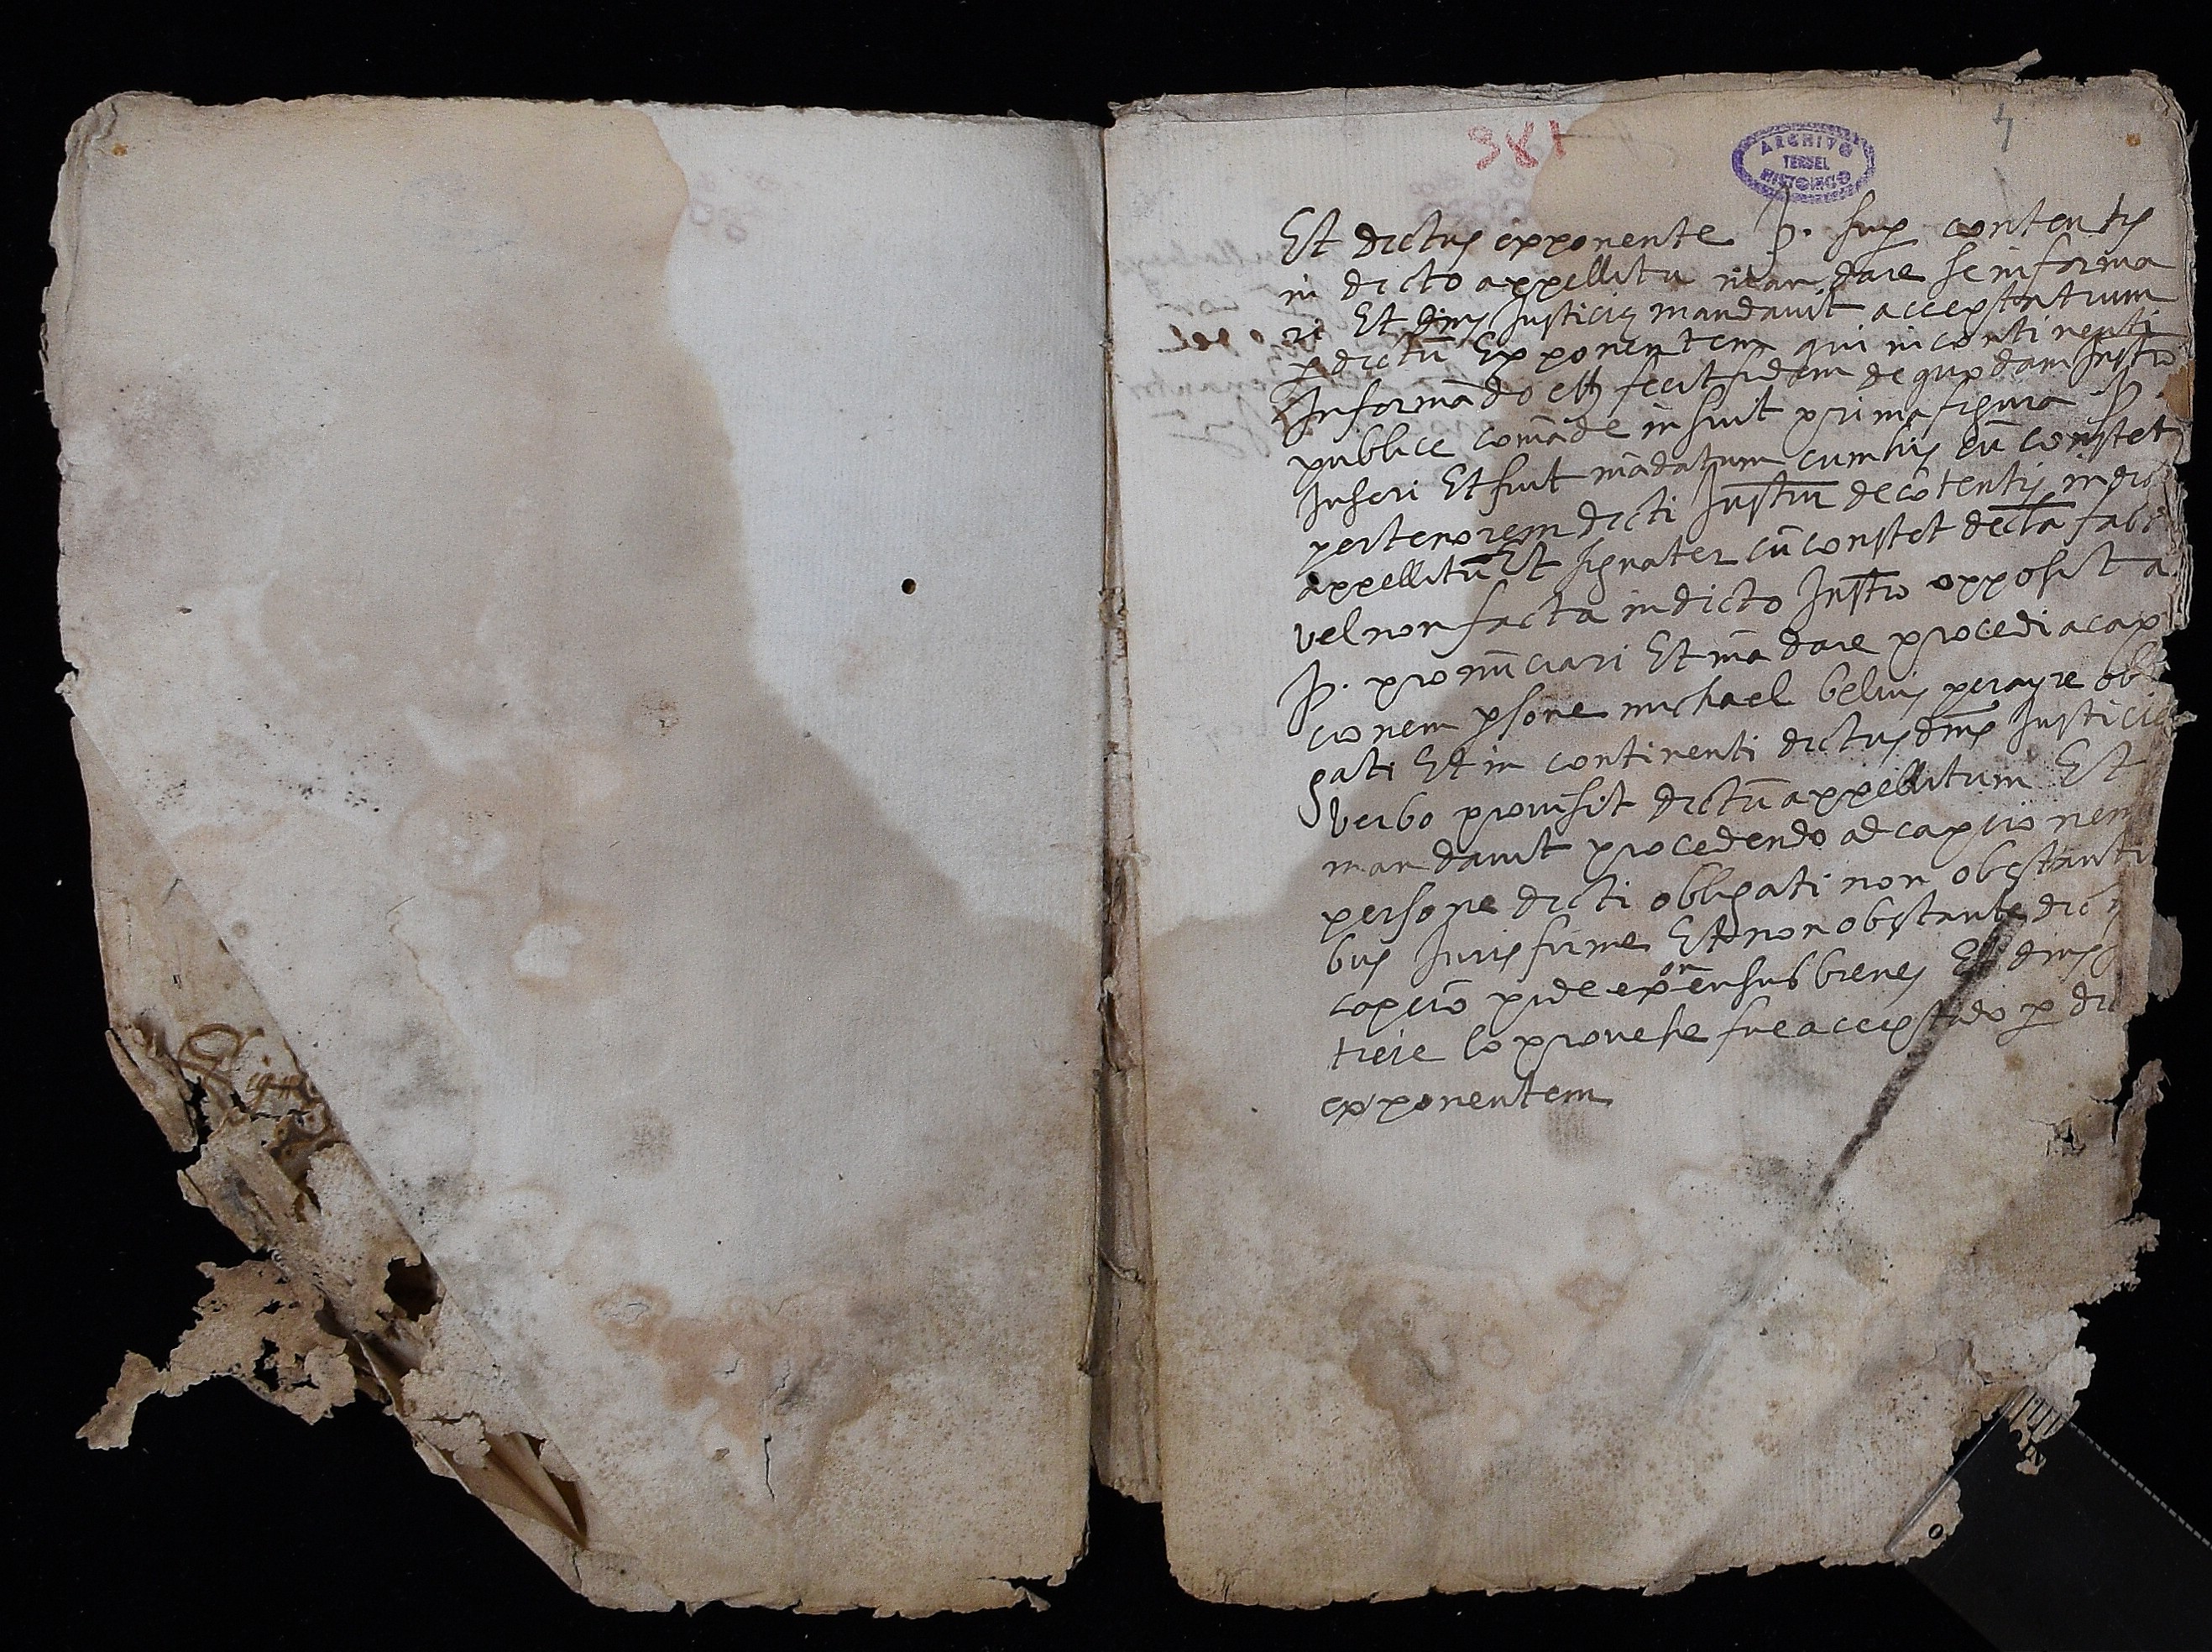 381
4
ARCHIVO
HISTORICO
Et dictus exponente p. sup contentis
in dicto appellitu mandare se informa
ri Et dnus Justicia mandavit acceptatum
p dictū Exponentem qui in continenti
Informādo etc fecit fidem de quodam Instro
publice comāde insuit prima figura p.
Inseri Et fuit mādatum cum his cū constet
per tenorem dicti Instru de cōtentis in dicto
appellitū Et signater cū constet decla facta
vel non facta in dicto Instro opposita
p. pronūciari Et mādare procedi a cap
cionem psone michael beluis perayre obli
gati Et in continenti dictus dnus Justicia
verbo provisit dictū appellitum Et
mandavit procedendo ad capcionem
persone dicti obligati non obstanti
bus Juris firme Et non obstante dict
capcio pide
lo provehe fue acceptado p dic
exponentem
Signo